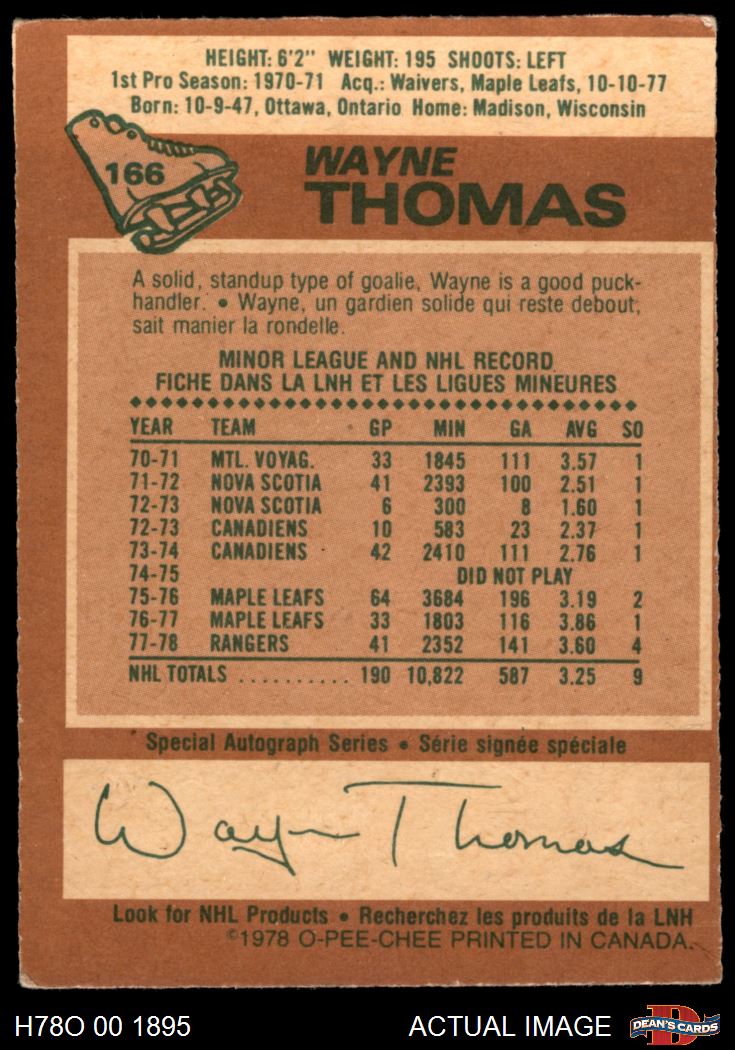 HEIGHT: 6'2" WEIGHT: 195 SHOOTS: LEFT
1st Pro Season: 1970-71 Acq.: Waivers, Maple Leafs, 10-10-77
Born: 10-9-47, Ottawa, Ontario Home: Madison, Wisconsin
166
WAYNE
THOMAS
A solid, standup type of goalie, Wayne is a good puck-
handler. • Wayne, un gardien solide qui reste debout,
sait manier la rondelle.
MINOR LEAGUE AND NHL RECORD
FICHE DANS LA LNH ET LES LIGUES MINEURES
YEAR TEAM GP MIN GA AVG SO
70-71 MTL. VOYAG. 33 1845 111 3.57 1
71-72 NOVA SCOTIA 41 2393 100 2.51 1
72-73 NOVA SCOTIA 6 300 8 1.60 1
72-73 CANADIENS 10 583 23 2.37 1
73-74 CANADIENS 42 2410 111 2.76 1
74-75 DID NOT PLAY
75-76 MAPLE LEAFS 64 3684 196 3.19 2
76-77 MAPLE LEAFS 33 1803 116 3.86 1
77-78 RANGERS 41 2352 141 3.60 4
NHL TOTALS .......... 190 10,822 587 3.25 9
Special Autograph Series • Série signée spéciale
Wayne Thomas
Look for NHL Products • Recherchez les produits de la LNH
©1978 O-PEE-CHEE PRINTED IN CANADA.
H78O 00 1895 ACTUAL IMAGE D DEAN'S CARDS